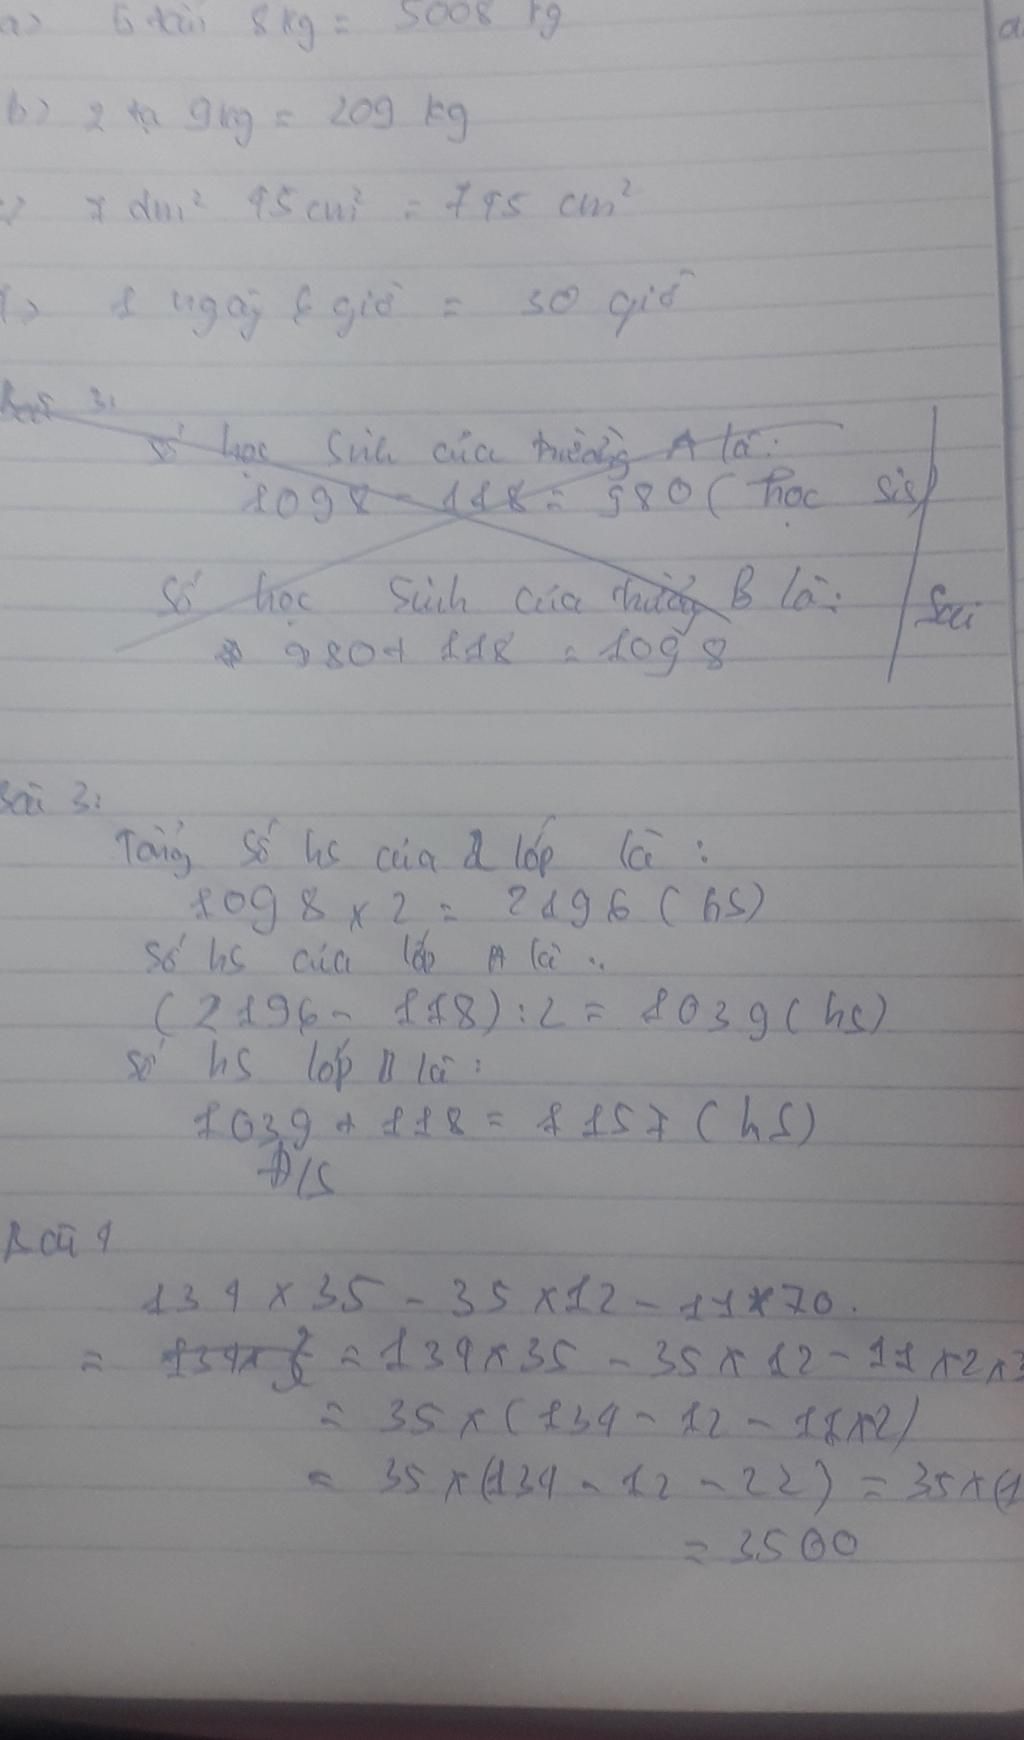 a) 5 tấn 8 kg = 5008 kg
b) 2 tạ 9 kg = 209 kg
c) 7 dm² 45 cm² = 745 cm²
1 ngày 6 giờ = 30 giờ
Bài 3:
Số học sinh của trường A là:
1098 - 118 = 980 ( học sis)
Số học sinh của trường B là:
Sai
980 + 118 = 1098
Bài 3:
Tổng số hs của 2 lớp là :
1098 x 2 = 2196 (hs)
số hs của lớp A là :
(2196 - 118) : 2 = 1039 (hs)
số hs lớp B là :
1039 + 118 = 1157 (hs)
Đ/S
Bài 4
134 x 35 - 35 x 12 - 11 x 70.
= = 134 x 35 - 35 x 12 - 11 x 2 x 3
= 35 x (134 - 12 - 11 x 2)
= 35 x (134 - 12 - 22) = 35 x (1
= 3500